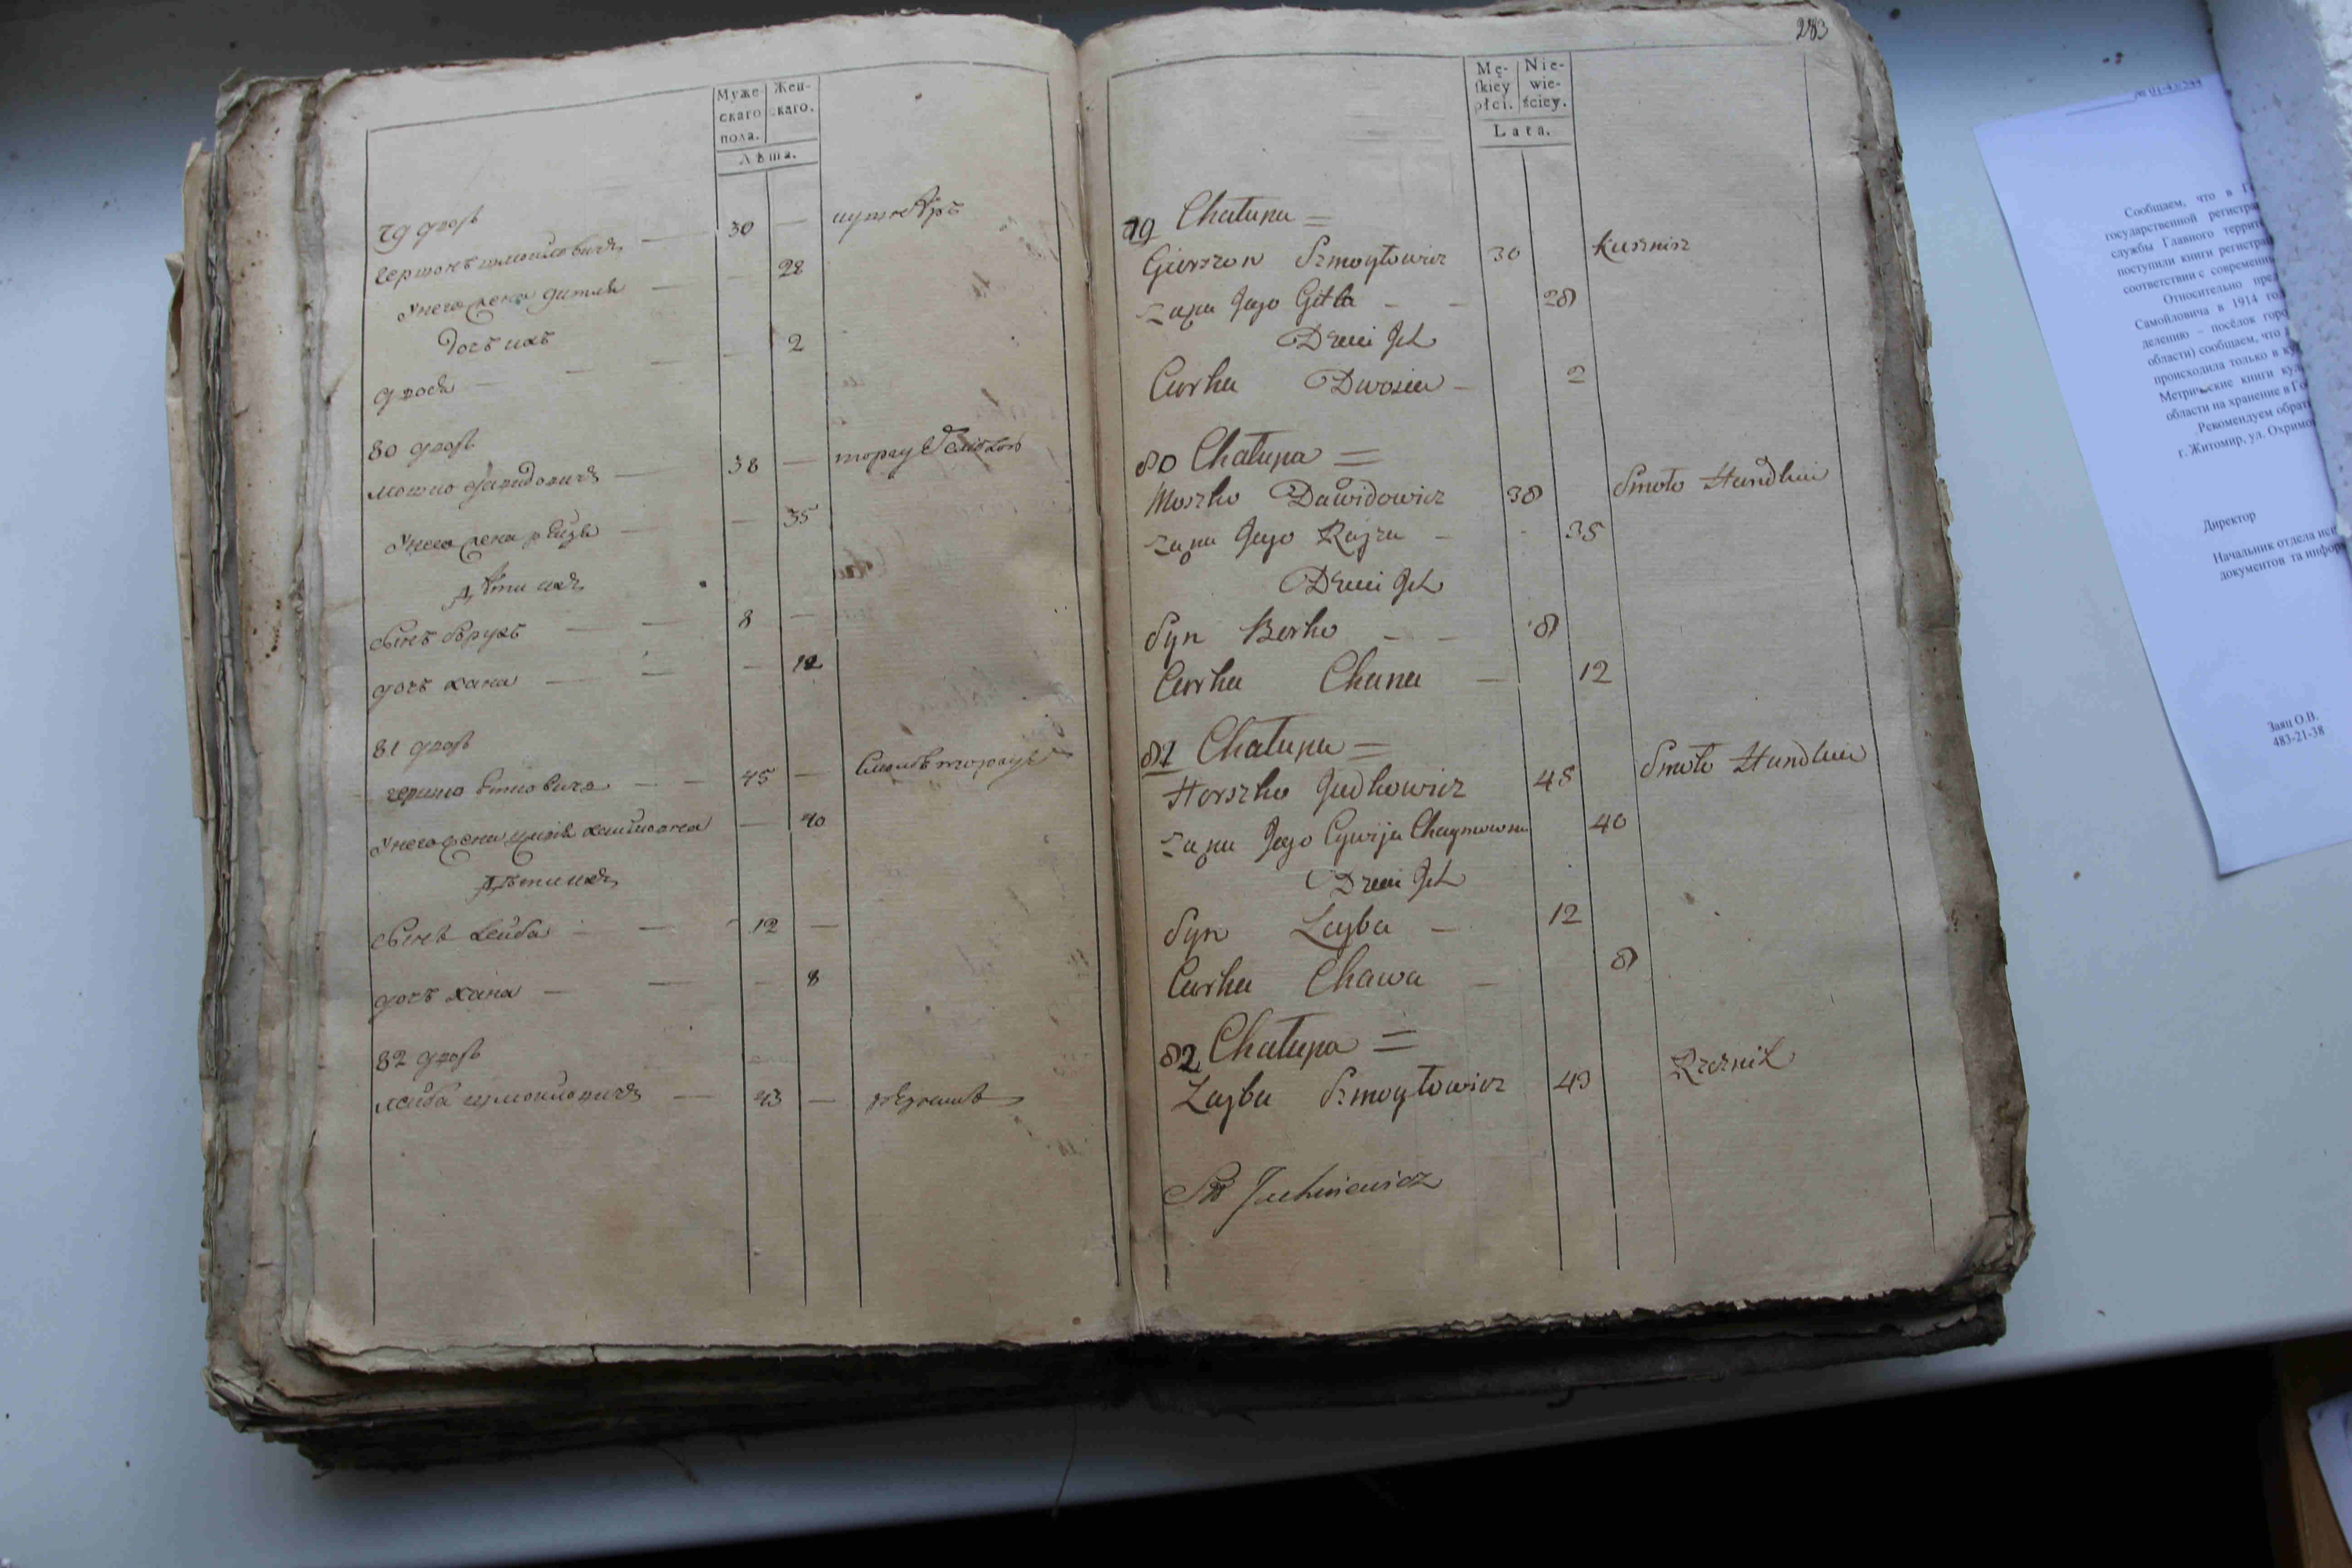 Муже-
скаго
пола.
Жен-
скаго.
Лѣта.
79 дворъ
гершонъ шмойловичъ — 30 —
у него жена гитля — — 28
дочъ ихъ
двося — — — 2
80 дворъ
мошко давидовичъ — 38 —
у него жена рейзя — — 35
дѣти ихъ
сынъ — — 8 —
дочъ хана — — — 12
81 дворъ
гершко — — 45 —
у него жена цивія хаймовна — 40
дѣти ихъ
сынъ лейба — — 12 —
дочъ хана — — — 8
82 дворъ
лейба шмойловичъ — 43 —
283
Mę-
skiey
płci.
Nie-
wie-
ściey.
Lata.
79 Chałupa =
Gierszon Szmoyłowicz 30 Kusznirz
Żona Jego Gitla — — 28
Dzieci Ich
Curka Dwosia — 2
80 Chałupa =
Moszko Dawidowicz 38 Smoło Handluie
Żona Jego Rayza — - 35
Dzieci Ich
Syn Berko — — 8
Curka Chana — 12
81 Chałupa =
Herszko Judkowicz 45 Smoło Handluie
Żona Jego Cywija Chaymowna 40
Dzieci Ich
Syn Layba — 12
Curka Chawa — 8
82 Chałupa =
Layba Szmoyłowicz 43 Rzeznik
Сообщаем, что в
государственной регистра
службы Главного террит
поступили книги регистра
соответствии с современн
Относительно
Самойловича в 1914 го
делению – посёлок горо
области) сообщаем, что
происходила только в
Метрические книги
области на хранение в
Рекомендуем обрат
г. Житомир, ул. Охримо
Директор
Начальник отдела исп
документов та инфор
Заяц О.В.
483-21-38